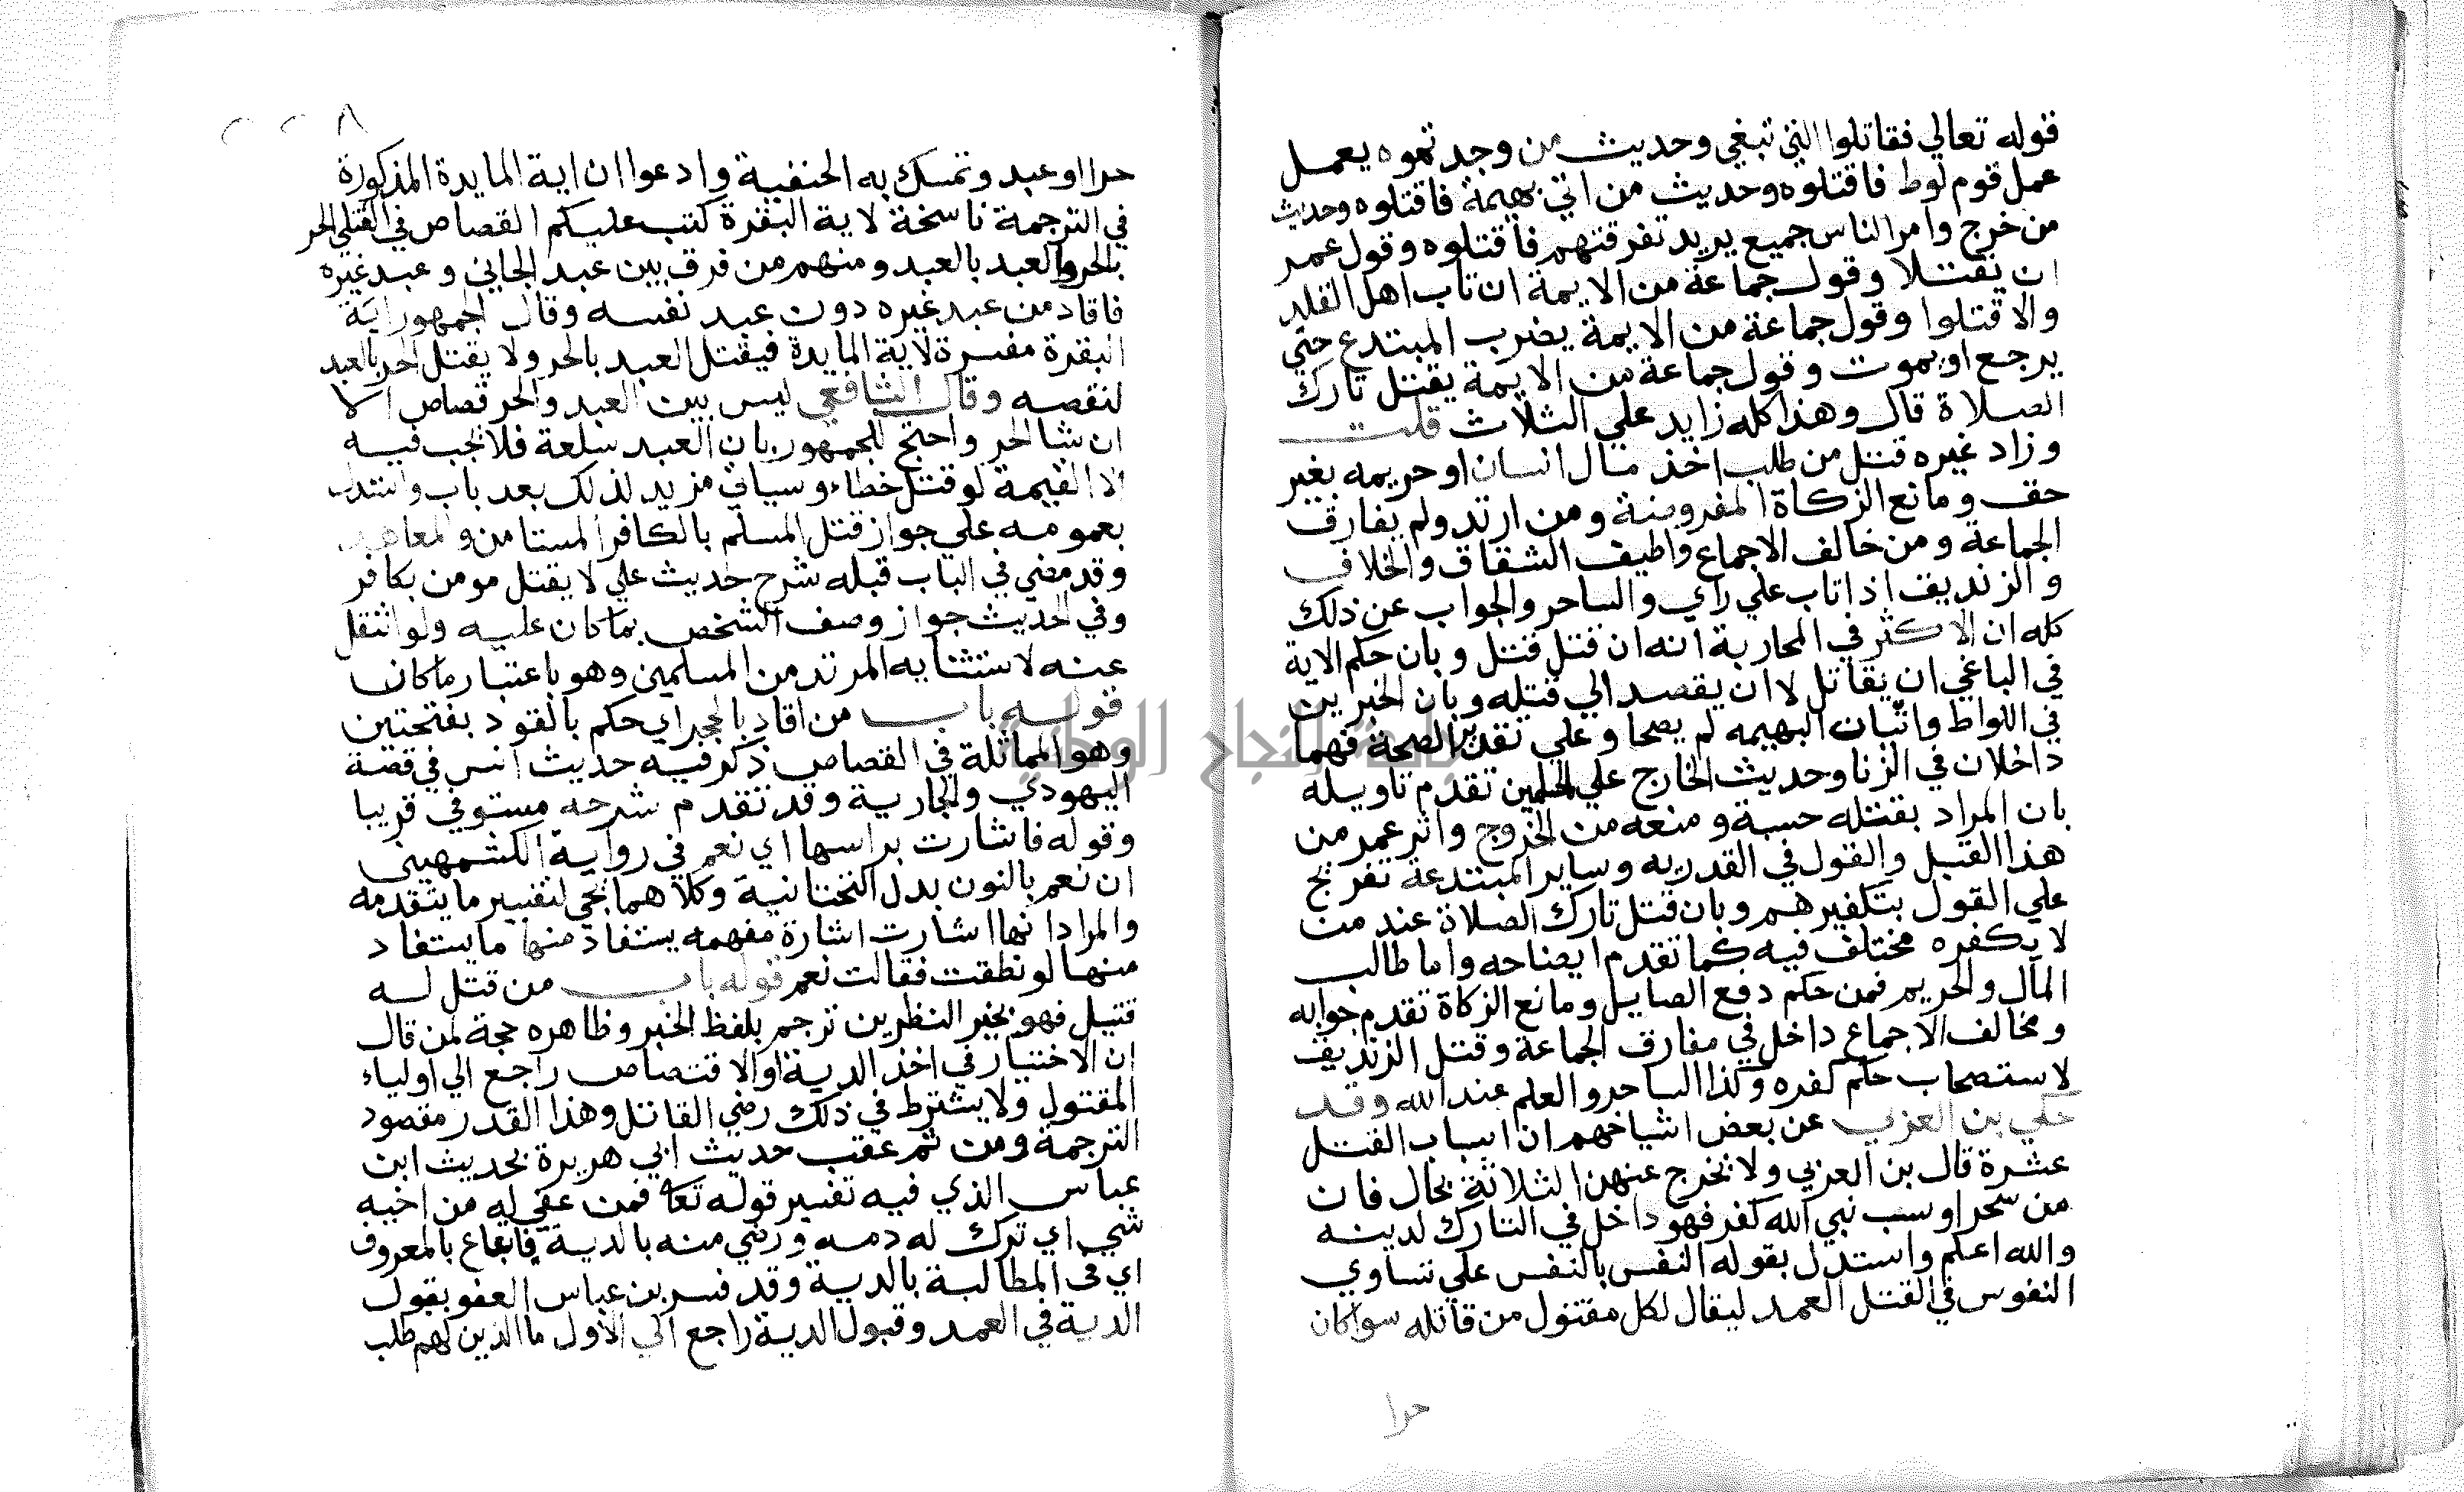 قوله تعالي فقاتلوا التي تبغي وحديث من وجدتموه يعمل
عمل قوم لوط فاقتلوه وحديث من اتي بهيمة فاقتلوه وحديث
من خرج وامر الناس جميع يريد تفرقتهم فاقتلوه وقول عمر
ان يقتلا وقول جماعة من الايمة ان تاب اهل القدر
والا قتلوا وقول جماعة من الايمة يضرب المبتدع حتي
يرجع او يموت وقول جماعة من الايمة يقتل تارك
الصلاة قال وهذا كله زايد علي الثلاث قلت
وزاد غيره قتل من طلب اخذ مال انسان او حريمه بغير
حق ومانع الزكاة المفروضة ومن ارتد ولم يفارق
الجماعة ومن خالف الاجماع واظهر الشقاق والخلاف
والزنديق اذا تاب علي راي والساحر والجواب عن ذلك
كله ان الاكثر في المحاربة انه ان قتل قتل وبان حكم الاية
في الباغي ان يقاتل لا ان يقصد الي قتله وبان الخبرين
في اللواط واتيان البهيمه لم يصحا وعلي تقدير الصحة فهما
داخلان في الزنا وحديث الخارج علي المسلمين تقدم تاويله
بان المراد بقتله حبسه ومنعه من الخروج واثر عمر من
هذا القبيل والقول في القدريه وساير المبتدعة تفريع
علي القول بتكفيرهم وبان قتل تارك الصلاة عند من
لا يكفره مختلف فيه كما تقدم ايضاحه واما طالب
المال والحريم فمن حكم دفع الصايل ومانع الزكاة تقدم جوابه
ومخالف الاجماع داخل في مفارق الجماعة وقتل الزنديق
لاستصحاب حكم كفره وكذا الساحر والعلم عند الله وقد
حكي بن العزبي عن بعض اشياخهم ان اسباب القتل
عشرة قال بن العزبي ولا تخرج عنهن الثلاثة بحال فان
من سحر او سب نبي الله كفر فهو داخل في التارك لدينه
والله اعلم واستدل بقوله النفس بالنفس علي تساوي
النفوس في القتل العمد ليقال لكل مقتول من قاتله سوا كان
حرا
حرا او عبد وتمسك به الحنفية وادعوا ان اية المايدة المذكورة
في الترجمة ناسخة لاية البقرة كتب عليكم القصاص في القتلي الحر
بالحر والعبد بالعبد ومنهم من فرق بين عبد الجاني وعبد غيره
فاقاد من عبد غيره دون عبد نفسه وقال الجمهور اية
البقرة مفسرة لاية المايدة فيقتل العبد بالحر ولا يقتل الحر بالعبد
لنقصه وقال الشافعي ليس بين العبد والحر قصاص الا
ان شا الحر واحتج للجمهور بان العبد سلعة فلا تجب فيه
الا القيمة لو قتل خطاء وسياتي مزيد لذلك بعد باب واستدل
بعمومه علي جواز قتل المسلم بالكافر المستامن والمعاهد
وقد مضي في الباب قبله شرح حديث علي لا يقتل مومن بكافر
وفي الحديث جواز وصف الشخص بما كان عليه ولو انتقل
عنه لاستثنايه المرتد من المسلمين وهو باعتبار ما كان
قوله باب من اقاد بالحجر اي حكم بالقود بفتحتين
وهو المماثلة في القصاص ذكر فيه حديث انس في قصة
اليهودي والجارية وقد تقدم شرحه مستوفي قريبا
وقوله فاشارت براسها اي نعم في رواية الكشميهني
ان نعم بالنون بدل التحتانية وكلاهما يجي لتفسير ما يتقدمه
والمراد انها اشارت اشارة مفهمه يستفاد منها ما يستفاد
منها لو نطقت فقالت نعم قوله باب من قتل له
قتيل فهو بخير النظرين ترجم بلفظ الخبر وظاهره حجة لمن قال
ان الاختيار في اخذ الدية او الاقتصاص راجع الي اولياء
المقتول ولا يشترط في ذلك رضي القاتل وهذا القدر مقصود
الترجمة ومن ثم عقب حديث ابي هريرة بحديث ابن
عباس الذي فيه تفسير قوله تعا فمن عفي له من اخيه
شي اي ترك له دمه ورضي منه بالدية فاتباع بالمعروف
اي في المطالبة بالدية وقد فسر بن عباس العفو بقبول
الدية في العمد وقبول الدية راجع الي الاول ما الذين لهم طلب